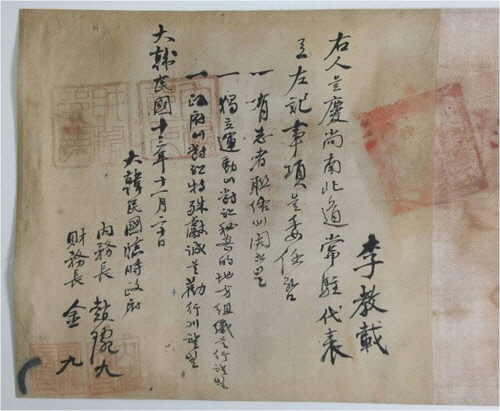 李教載
右人을慶尚南北道常駐代表
로左記事項을委任함
一 有志者聯絡에関한일
一 獨立運動에對한秘密的地方組織을行할일
一 政府에對한特殊獻誠을勸行케할일
大韓民國十三年十一月二十日
大韓民國臨時政府
內務長 趙琬九
財務長 金 九